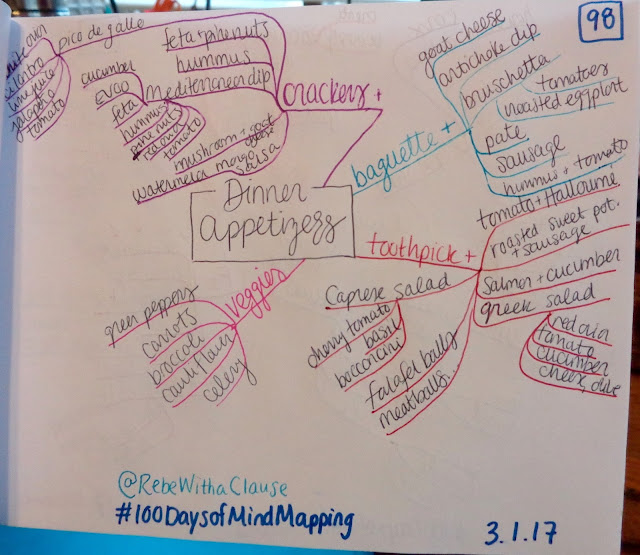 98
Dinner
Appetizers
crackers +
feta + pinenuts
hummus
Mediterenean dip
cucumber
EVOO
feta
hummus
pine nuts
red onion
tomato
mushroom + goat
cheese
watermelon mango salsa
pico de gallo
cilantro
lime juice
jalapeño
tomato
baguette +
goat cheese
artichoke dip
bruschetta
tomatoes
roasted eggplant
pate
sausage
hummus + tomato
toothpick +
tomato + Halloumi
roasted sweet pot.
+ sausage
Salmon + cucumber
greek salad
red onion
tomato
cucumber
cheese, olive
Caprese salad
cherry tomato
basil
bocconcini
falafel balls
meatballs...
veggies
green peppers
carrots
broccoli
cauliflower
celery
@RebeWithaClause
#100DaysofMindMapping
3.1.17